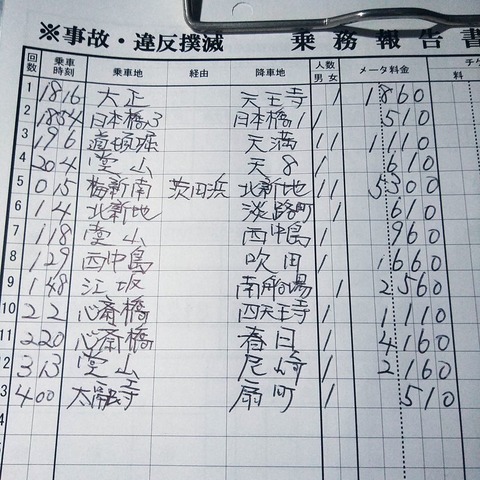 ※事故・違反撲滅 乗務報告書
回数 乗車時刻 乗車地 経由 降車地 人数 男 女 メータ料金 チケ 料
1 1816 大正 天王寺 1 1860
2 1854 日本橋3 日本橋1 1 510
3 196 道頓堀 天満 1 1 1110
4 204 堂山 天8 1 610
5 015 梅新南 茨田浜 北新地 1 1 5300
6 14 北新地 淡路町 1 610
7 118 堂山 西中島 1 960
8 129 西中島 吹田 1 1660
9 148 江坂 南船場 1 2560
10 22 心斎橋 四天王寺 1 1110
11 220 心斎橋 春日 1 4160
12 313 堂山 尼崎 1 2160
3 400 太融寺 扇町 1 510
4
5
6